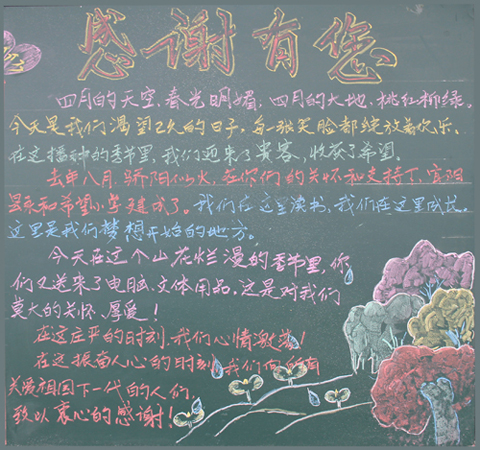 感谢有您
四月的天空,春光明媚,四月的大地,桃红柳绿。
今天是我们渴望已久的日子,每一张笑脸都绽放着快乐,
在这播种的季节里,我们迎来了贵客,收获了希望。
去年八月,骄阳似火,在你们的关怀和支持下,宜阳
县禾和希望小学建成了。我们在这里读书,我们在这里成长。
这里是我们梦想开始的地方。
今天在这个山花烂漫的季节里,你
们又送来了电脑、文体用品,这是对我们
莫大的关怀、厚爱!
在这庄严的时刻,我们心情激动!
在这振奋人心的时刻,我们向所有
关爱祖国下一代的人们,
致以衷心的感谢!